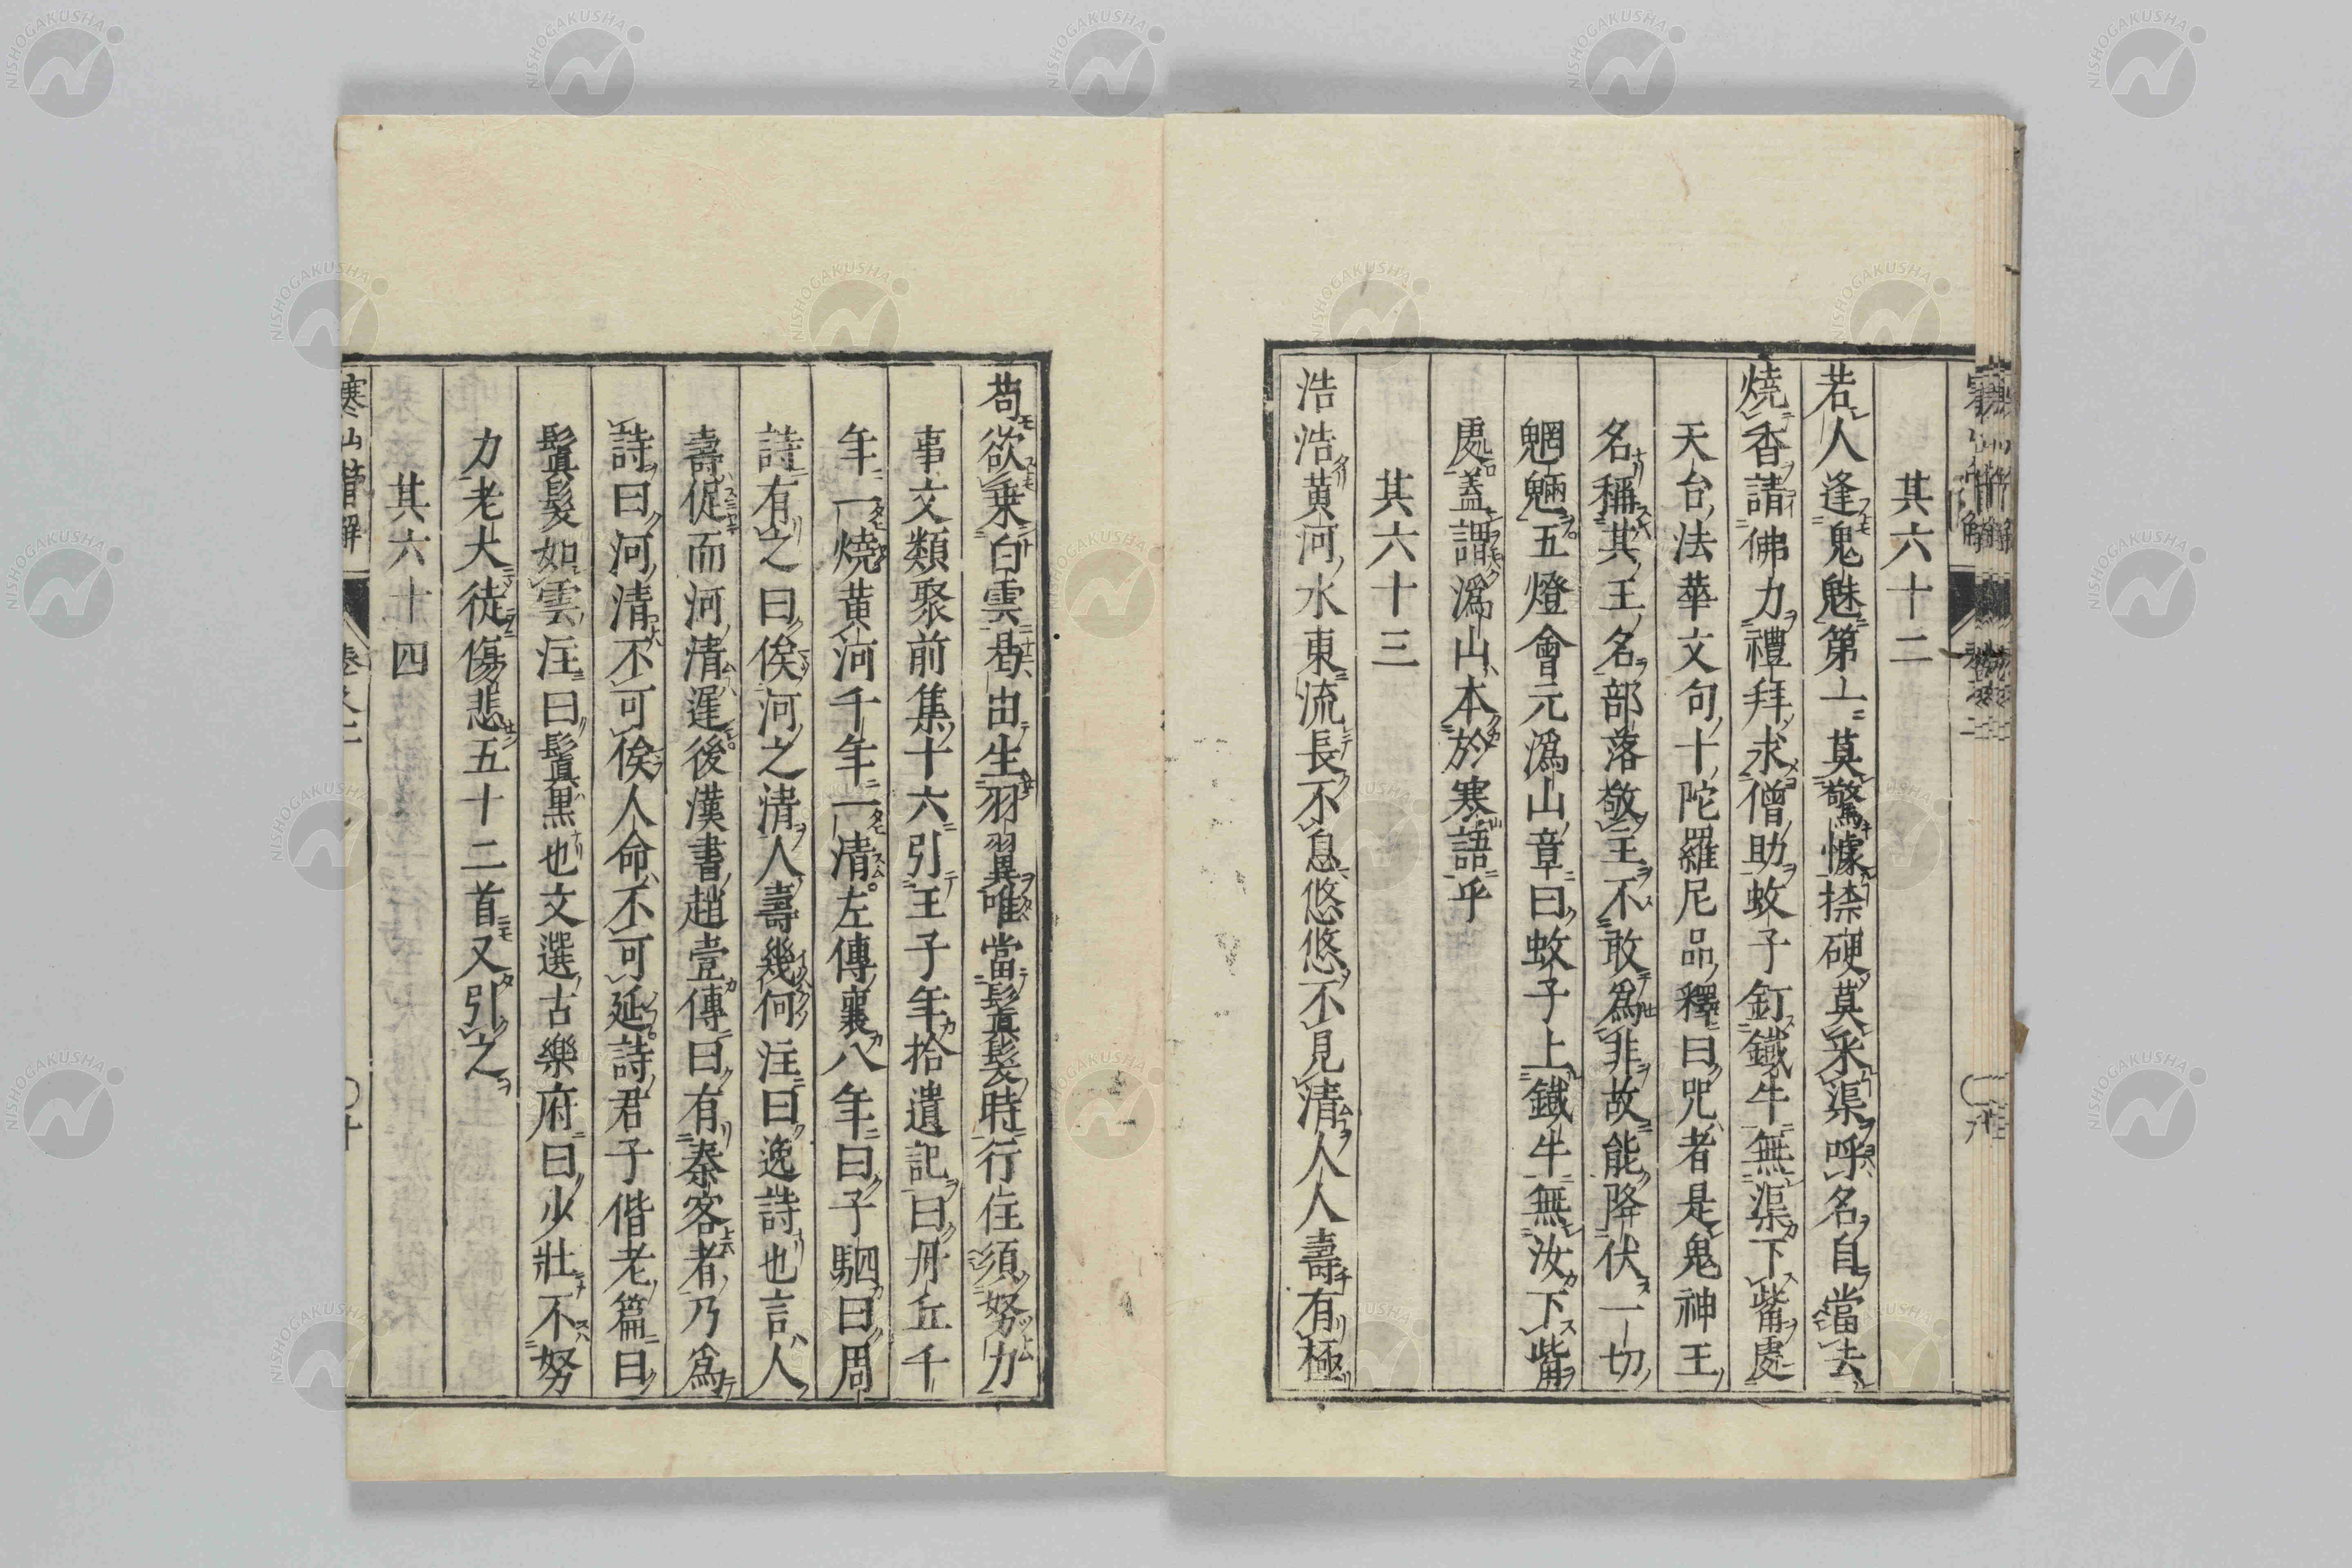 其六十二
若人逢鬼魅第一莫驚懅捺硬莫采渠呼名自當去
燒香請佛力禮拜求僧助蚊子釘鐵牛無渠下觜處
天台法華文句十陀羅尼品釋曰咒者是鬼神王
名稱其王名部落敬主不敢爲非故能降伏一切
魍魎五燈會元潙山章曰蚊子上鐵牛無汝下觜
處蓋謂潙山本於寒語乎
其六十三
浩浩黃河水東流長不息悠悠不見清人人壽有極
苟欲乗白雲曷由生羽翼唯當鬒髮時行住須努力
事文類聚前集十六引王子年拾遺記曰丹丘千
年一燒黃河千年一清左傳襄八年曰子駟曰周
詩有之曰俟河之清人壽幾何注曰逸詩也言人
壽促而河清遲後漢書趙壹傳曰有秦客者乃爲
詩曰河清不可俟人命不可延詩君子偕老篇曰
鬒髮如雲注曰鬒黑也文選古樂府曰少壯不努
力老大徒傷悲五十二首又引之
其六十四
寒山詩解
NISHOGAKUSHA